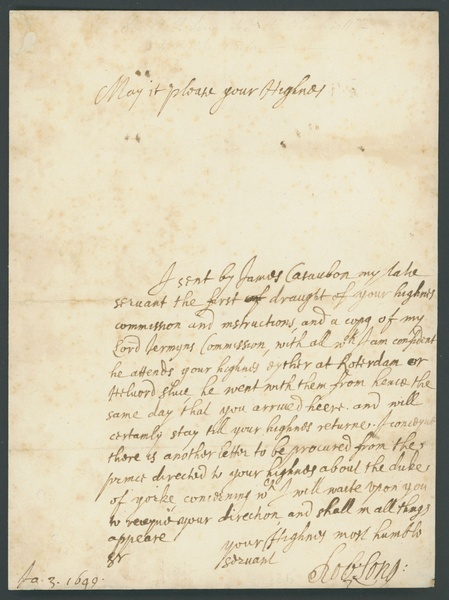 May it please your Highnes
I sent by James Casaubon my late
servant the first of draught of your highnes
commission and instructions, and a copy of my
Lord Jermyns Commission, with all wch I am confident
he attends your highnes eyther at Roterdam or
Helvord sluce he went with them from hence the
same day that you arrived heere. and will
certainly stay till your highnes returne. I conceive
there is another letter to be procured from the
prince directed to your highnes about the duke
of yorke concerning wch I will waite upon you
to receive your direction, and shall in all things
appeare
your Highnes most humble
servant
Rob: Long:
Ja. 3. 1649.